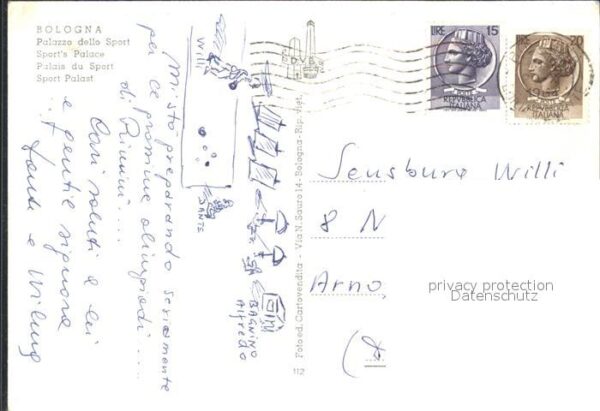 BOLOGNA
Palazzo dello Sport
Sport's Palace
Palais du Sport
Sport Palast
Mi sto preparando seriamente
per le prossime olimpiadi
di Rimini....
Cari saluti a lei
e gentil signora
Willi
SANTE
BAGNINO
Alfredo
Fotoed. Cartovendita - Via N. Sauro 14 - Bologna - Rip. Viet.
112
LIRE 15
POSTE
REPVBBLICA
ITALIANA
LIRE 20
ITALIANA
Sensburg Willi
8 N
Arno
privacy protection
Datenschutz